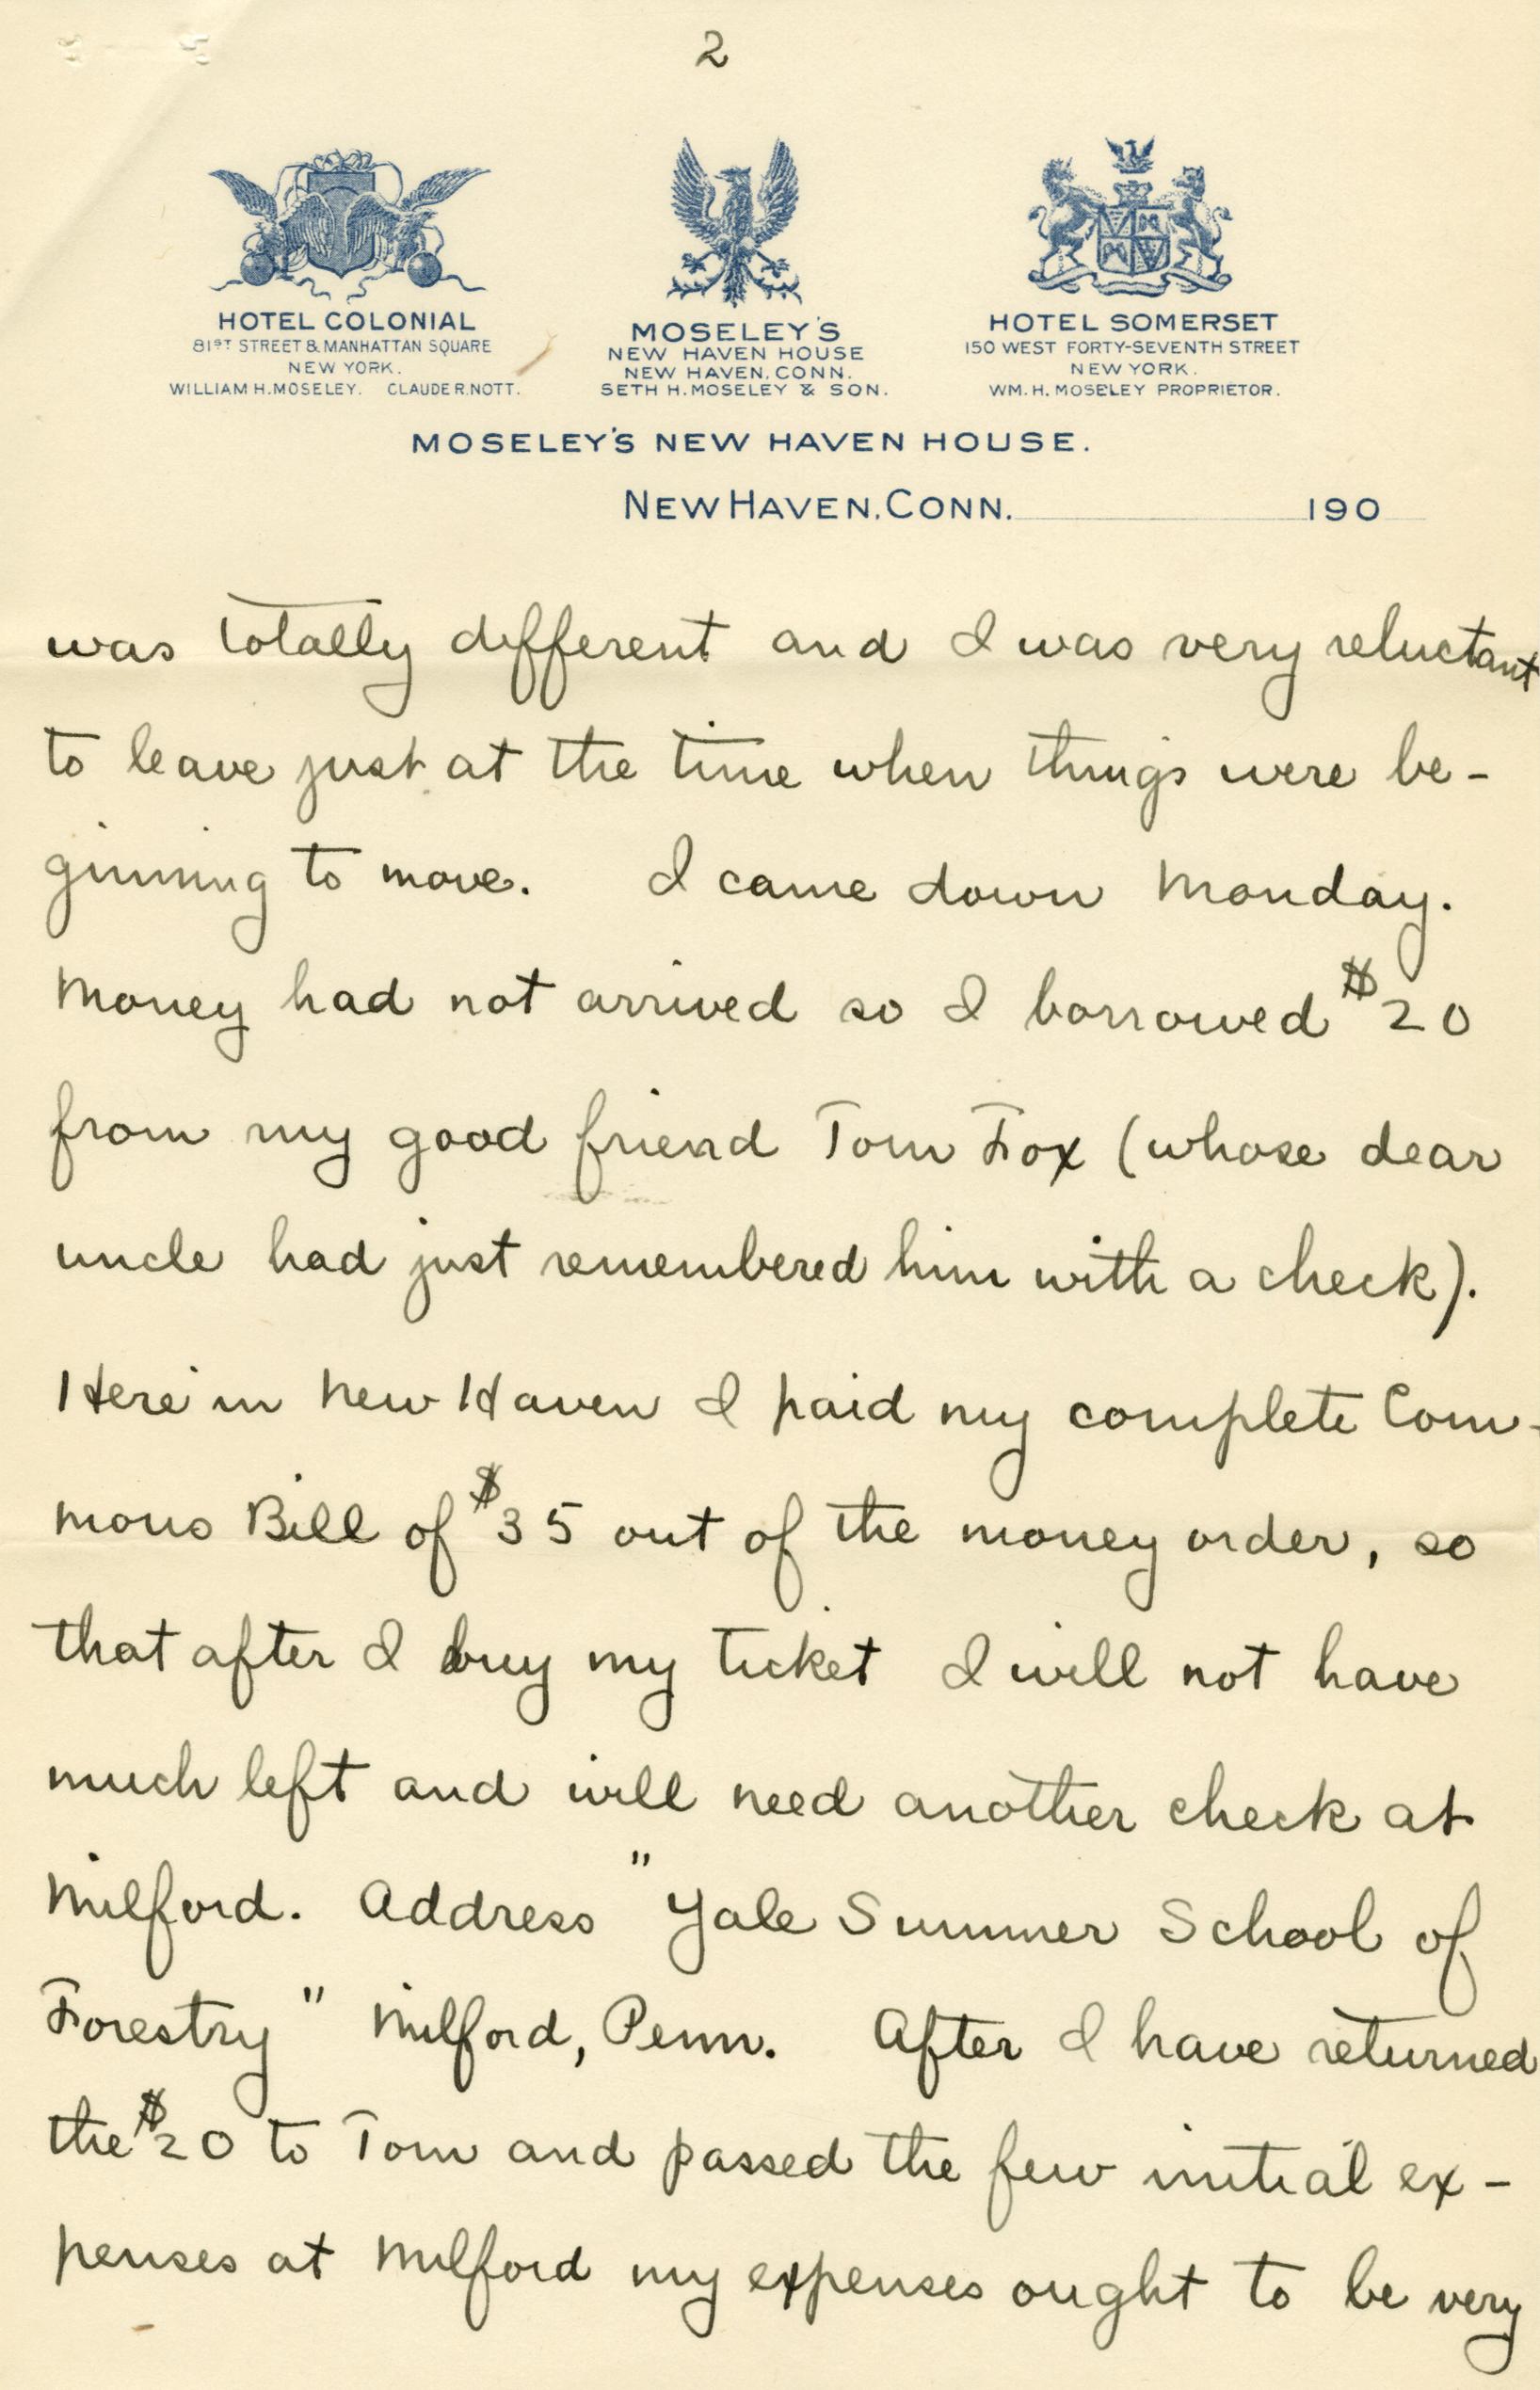 2
HOTEL COLONIAL
81ST STREET & MANHATTAN SQUARE
NEW YORK.
WILLIAM H. MOSELEY. CLAUDE R. NOTT.
MOSELEY'S
NEW HAVEN HOUSE
NEW HAVEN, CONN.
SETH H. MOSELEY & SON.
HOTEL SOMERSET
150 WEST FORTY-SEVENTH STREET
NEW YORK.
WM. H. MOSELEY PROPRIETOR.
MOSELEY'S NEW HAVEN HOUSE.
NEW HAVEN, CONN. 190
was totally different and I was very reluctant
to leave just at the time when things were be-
ginning to move. I came down Monday.
Money had not arrived so I borrowed $20
from my good friend Tom Fox (whose dear
uncle had just remembered him with a check).
Here in New Haven I paid my complete Com-
mons Bill of $35 out of the money order, so
that after I buy my ticket I will not have
much left and will need another check at
Milford. Address "Yale Summer School of
Forestry" Milford, Penn. After I have returned
the $20 to Tom and passed the few initial ex-
penses at Milford my expenses ought to be very